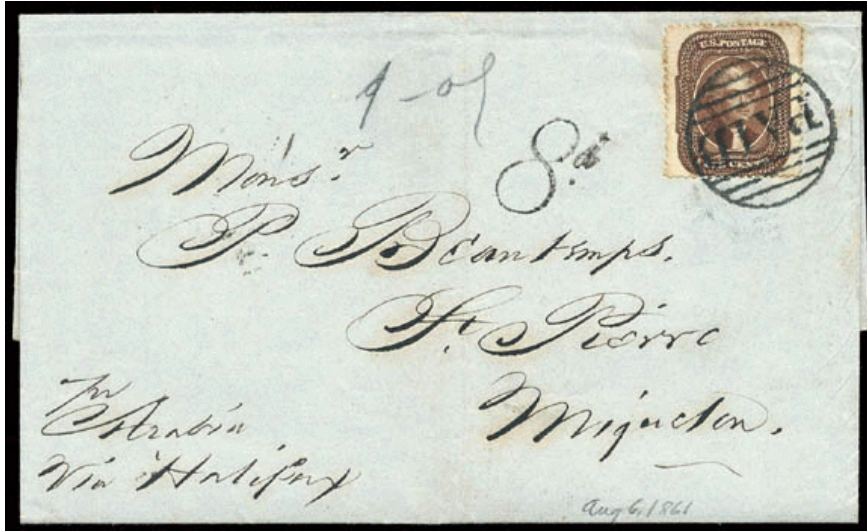 U.S. POSTAGE
8d
Monsr
P. Beautemps.
St. Pierre
Miquelon.
pr Arabia
via Halifax
Aug 6, 1861